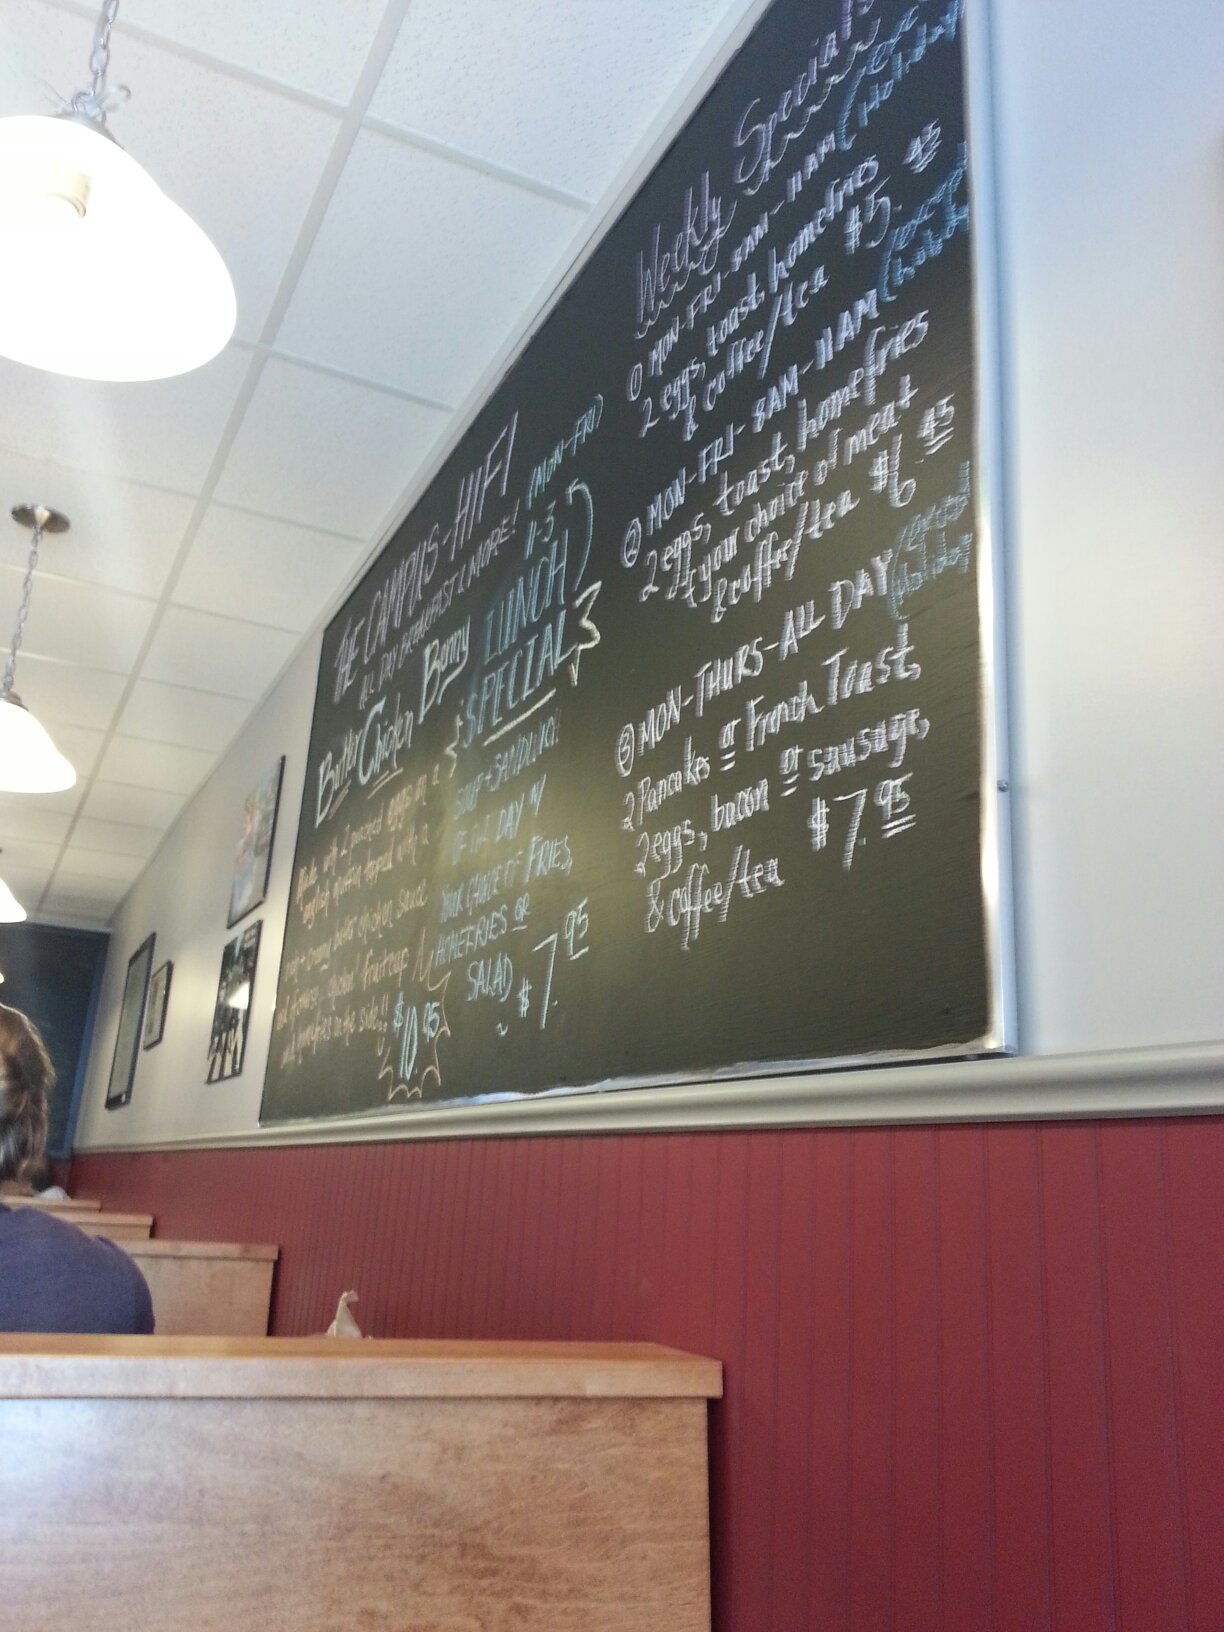 THE CAMPUS-HIFI
ALL DAY BREAKFAST & MORE!
Butter Chicken Benny
Made with 2 poached eggs on a
english muffin topped with a
creamy butter chicken sauce
fruit cup
and homefries on the side!!
$10.95
(MON-FRI)
11-3
LUNCH
SPECIAL
SOUP + SANDWICH
OF THE DAY W/
YOUR CHOICE OF FRIES,
HOMEFRIES OR
SALAD
$7.95
Weekly Specials
① MON-FRI-8AM-11AM (except
Holidays
2 eggs, toast, homefries
& coffee/tea $5.45
② MON-FRI-8AM-11AM (except
holiday
2 eggs, toast, homefries
+ your choice of meat
& coffee/tea $6.45
③ MON-THURS-ALL DAY (except
holiday
2 Pancakes or French Toast,
2 eggs, bacon or sausage,
& coffee/tea $7.95